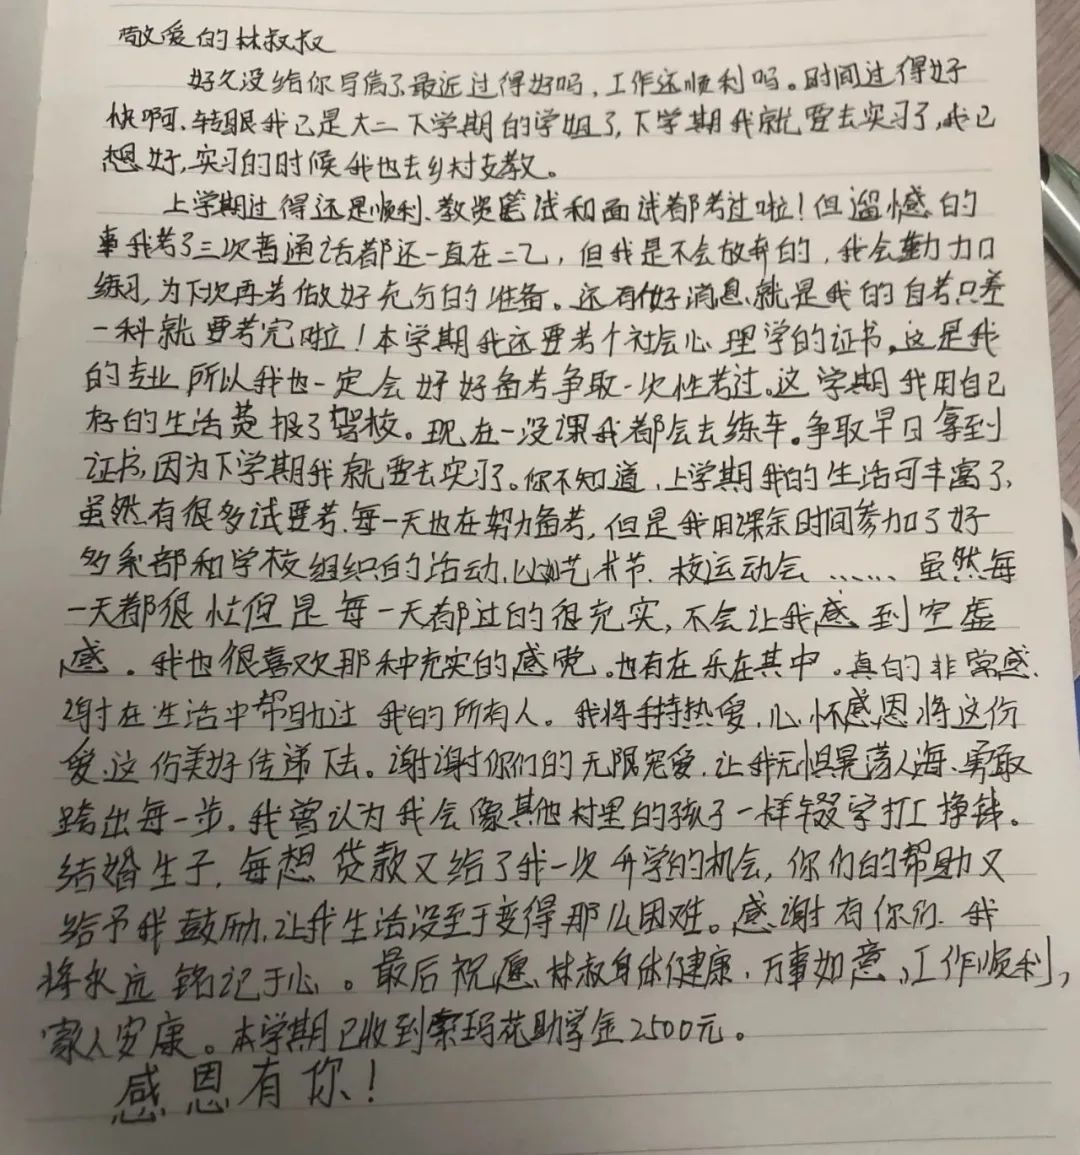 敬爱的林叔叔
好久没给你写信了,最近过得好吗,工作还顺利吗。时间过得好
快啊、转眼我已是大二下学期的学姐了,下学期我就要去实习了,我已
想好,实习的时候我也去乡村支教。
上学期过得还是顺利、教资笔试和面试都考过啦!但遛憾的
事我考了三次普通话都还一直在二乙,但我是不会放弃的,我会勤力口
练习,为下次再考做好充分的准备。还有做好消息、就是我的自考只差
一科就要考完啦!本学期我还要考个社会心理学的证书,这是我
的专业所以我也一定会好好备考争取一次性考过。这学期我用自己
存的生活费报了驾校。现在一没课我都会去练车。争取早日拿到
证书,因为下学期我就要去实习了。你不知道,上学期我的生活可丰富了,
虽然有很多试要考、每一天也在努力备考,但是我用课余时间参加了好
多系部和学校组织的活动,比如艺术节、校运动会……虽然每
一天都很忙但是每一天都过的很充实,不会让我感到空虚
感。我也很喜欢那种充实的感觉。也有在乐在其中。真的非常感
谢在生活中帮助过我的所有人。我将持热爱,心怀感恩将这份
爱、这份美好传递下去。谢谢你们的无限宠爱,让我无惧晃荡人海、勇敢
跨出每一步。我曾认为我会像其他村里的孩子一样辍学打工挣钱。
结婚生子,每想贷款又给了我一次升学的机会,你们的帮助又
给予我鼓励,让我生活没至于变得那么困难。感谢有你们、我
将永远铭记于心。最后祝愿、林叔身体健康、万事如意,工作顺利,
家人安康。本学期已收到索玛花助学金2500元。
感恩有你!